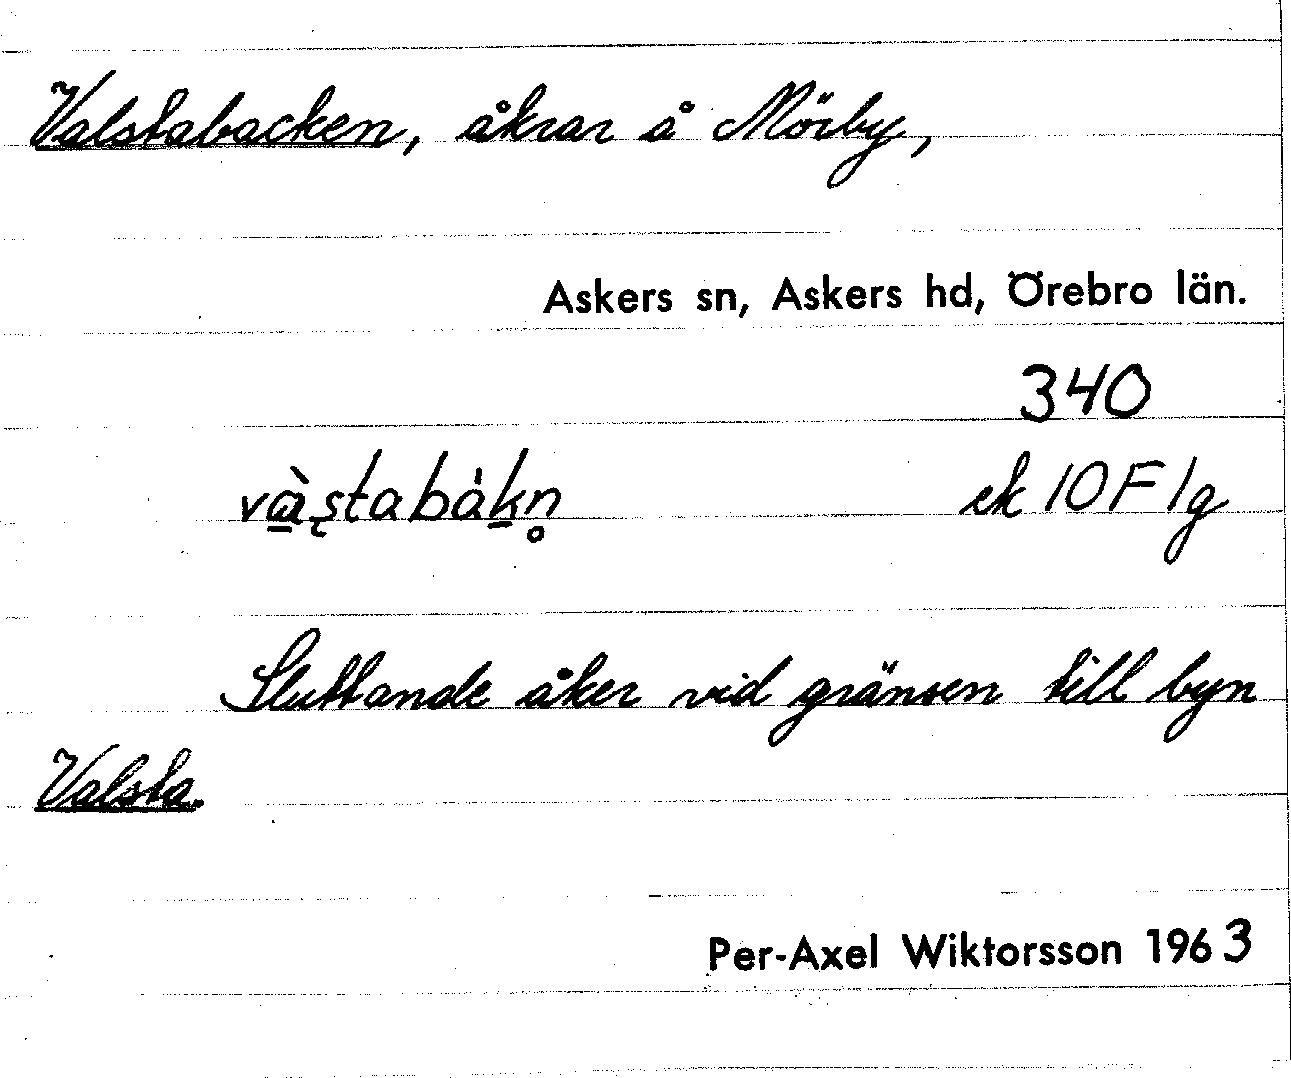 Valstabacken, åkrar å Mörby,
Askers sn, Askers hd, Örebro län.
340
và̱s̢tabåḵn̥ ek 10F1g
Sluttande åker vid gränsen till byn
Valsta.
Per-Axel Wiktorsson 1963